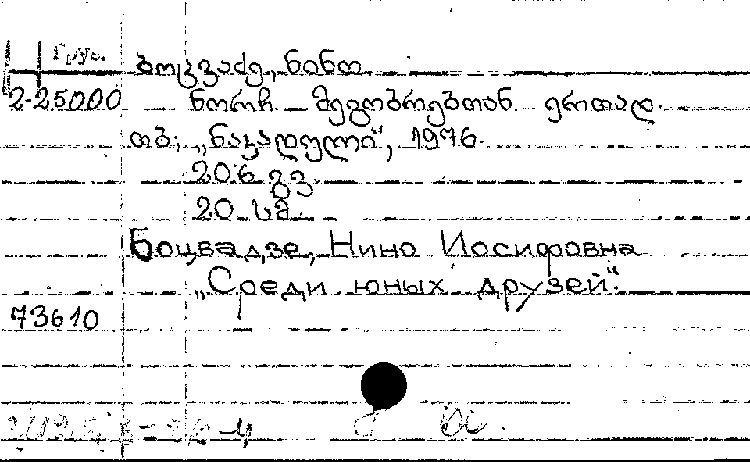 Груз.
ბოცვაძე, ნინო
2-25000 ნორჩ მეგობრებთან ერთად.
თბ., „ნაკადული“, 1976.
206 გვ.
20 სმ.
Боцвадзе, Нино Иосифовна
„Среди юных друзей“.
73610